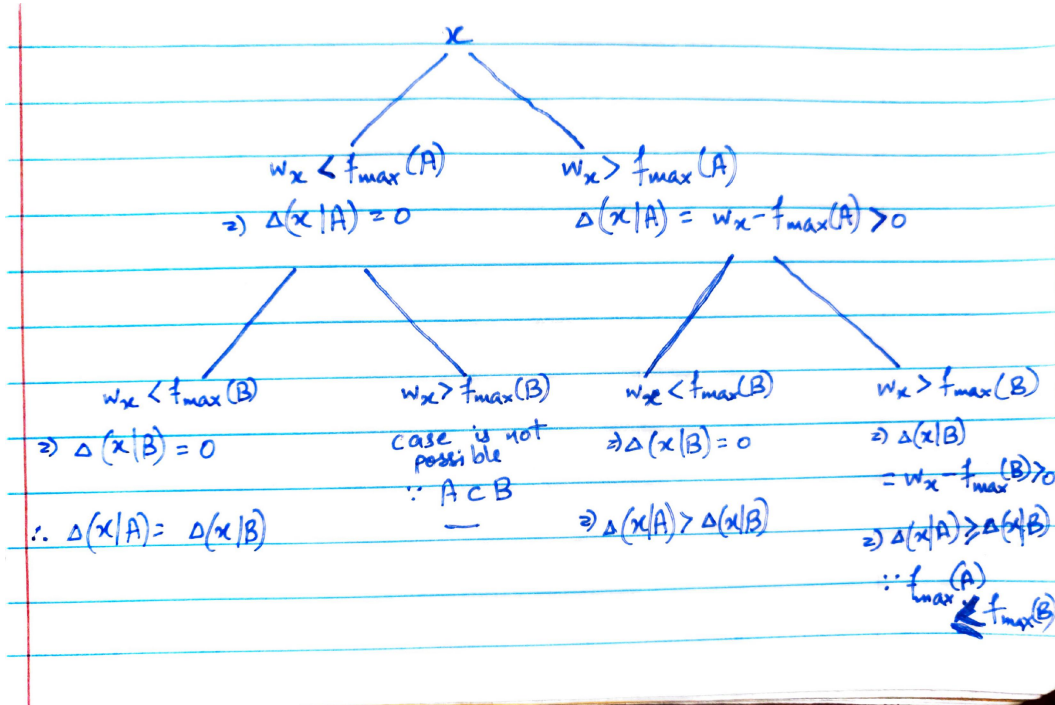 x
w_x < f_max(A)
⇒ Δ(x|A) = 0
w_x > f_max(A)
Δ(x|A) = w_x - f_max(A) > 0
w_x < f_max(B)
⇒ Δ(x|B) = 0
∴ Δ(x|A) = Δ(x|B)
w_x > f_max(B)
case is not
possible
∵ A ⊂ B
w_x < f_max(B)
⇒ Δ(x|B) = 0
⇒ Δ(x|A) > Δ(x|B)
w_x > f_max(B)
⇒ Δ(x|B)
= w_x - f_max(B) > 0
⇒ Δ(x|A) ≥ Δ(x|B)
∵ f_max(A)
≤ f_max(B)